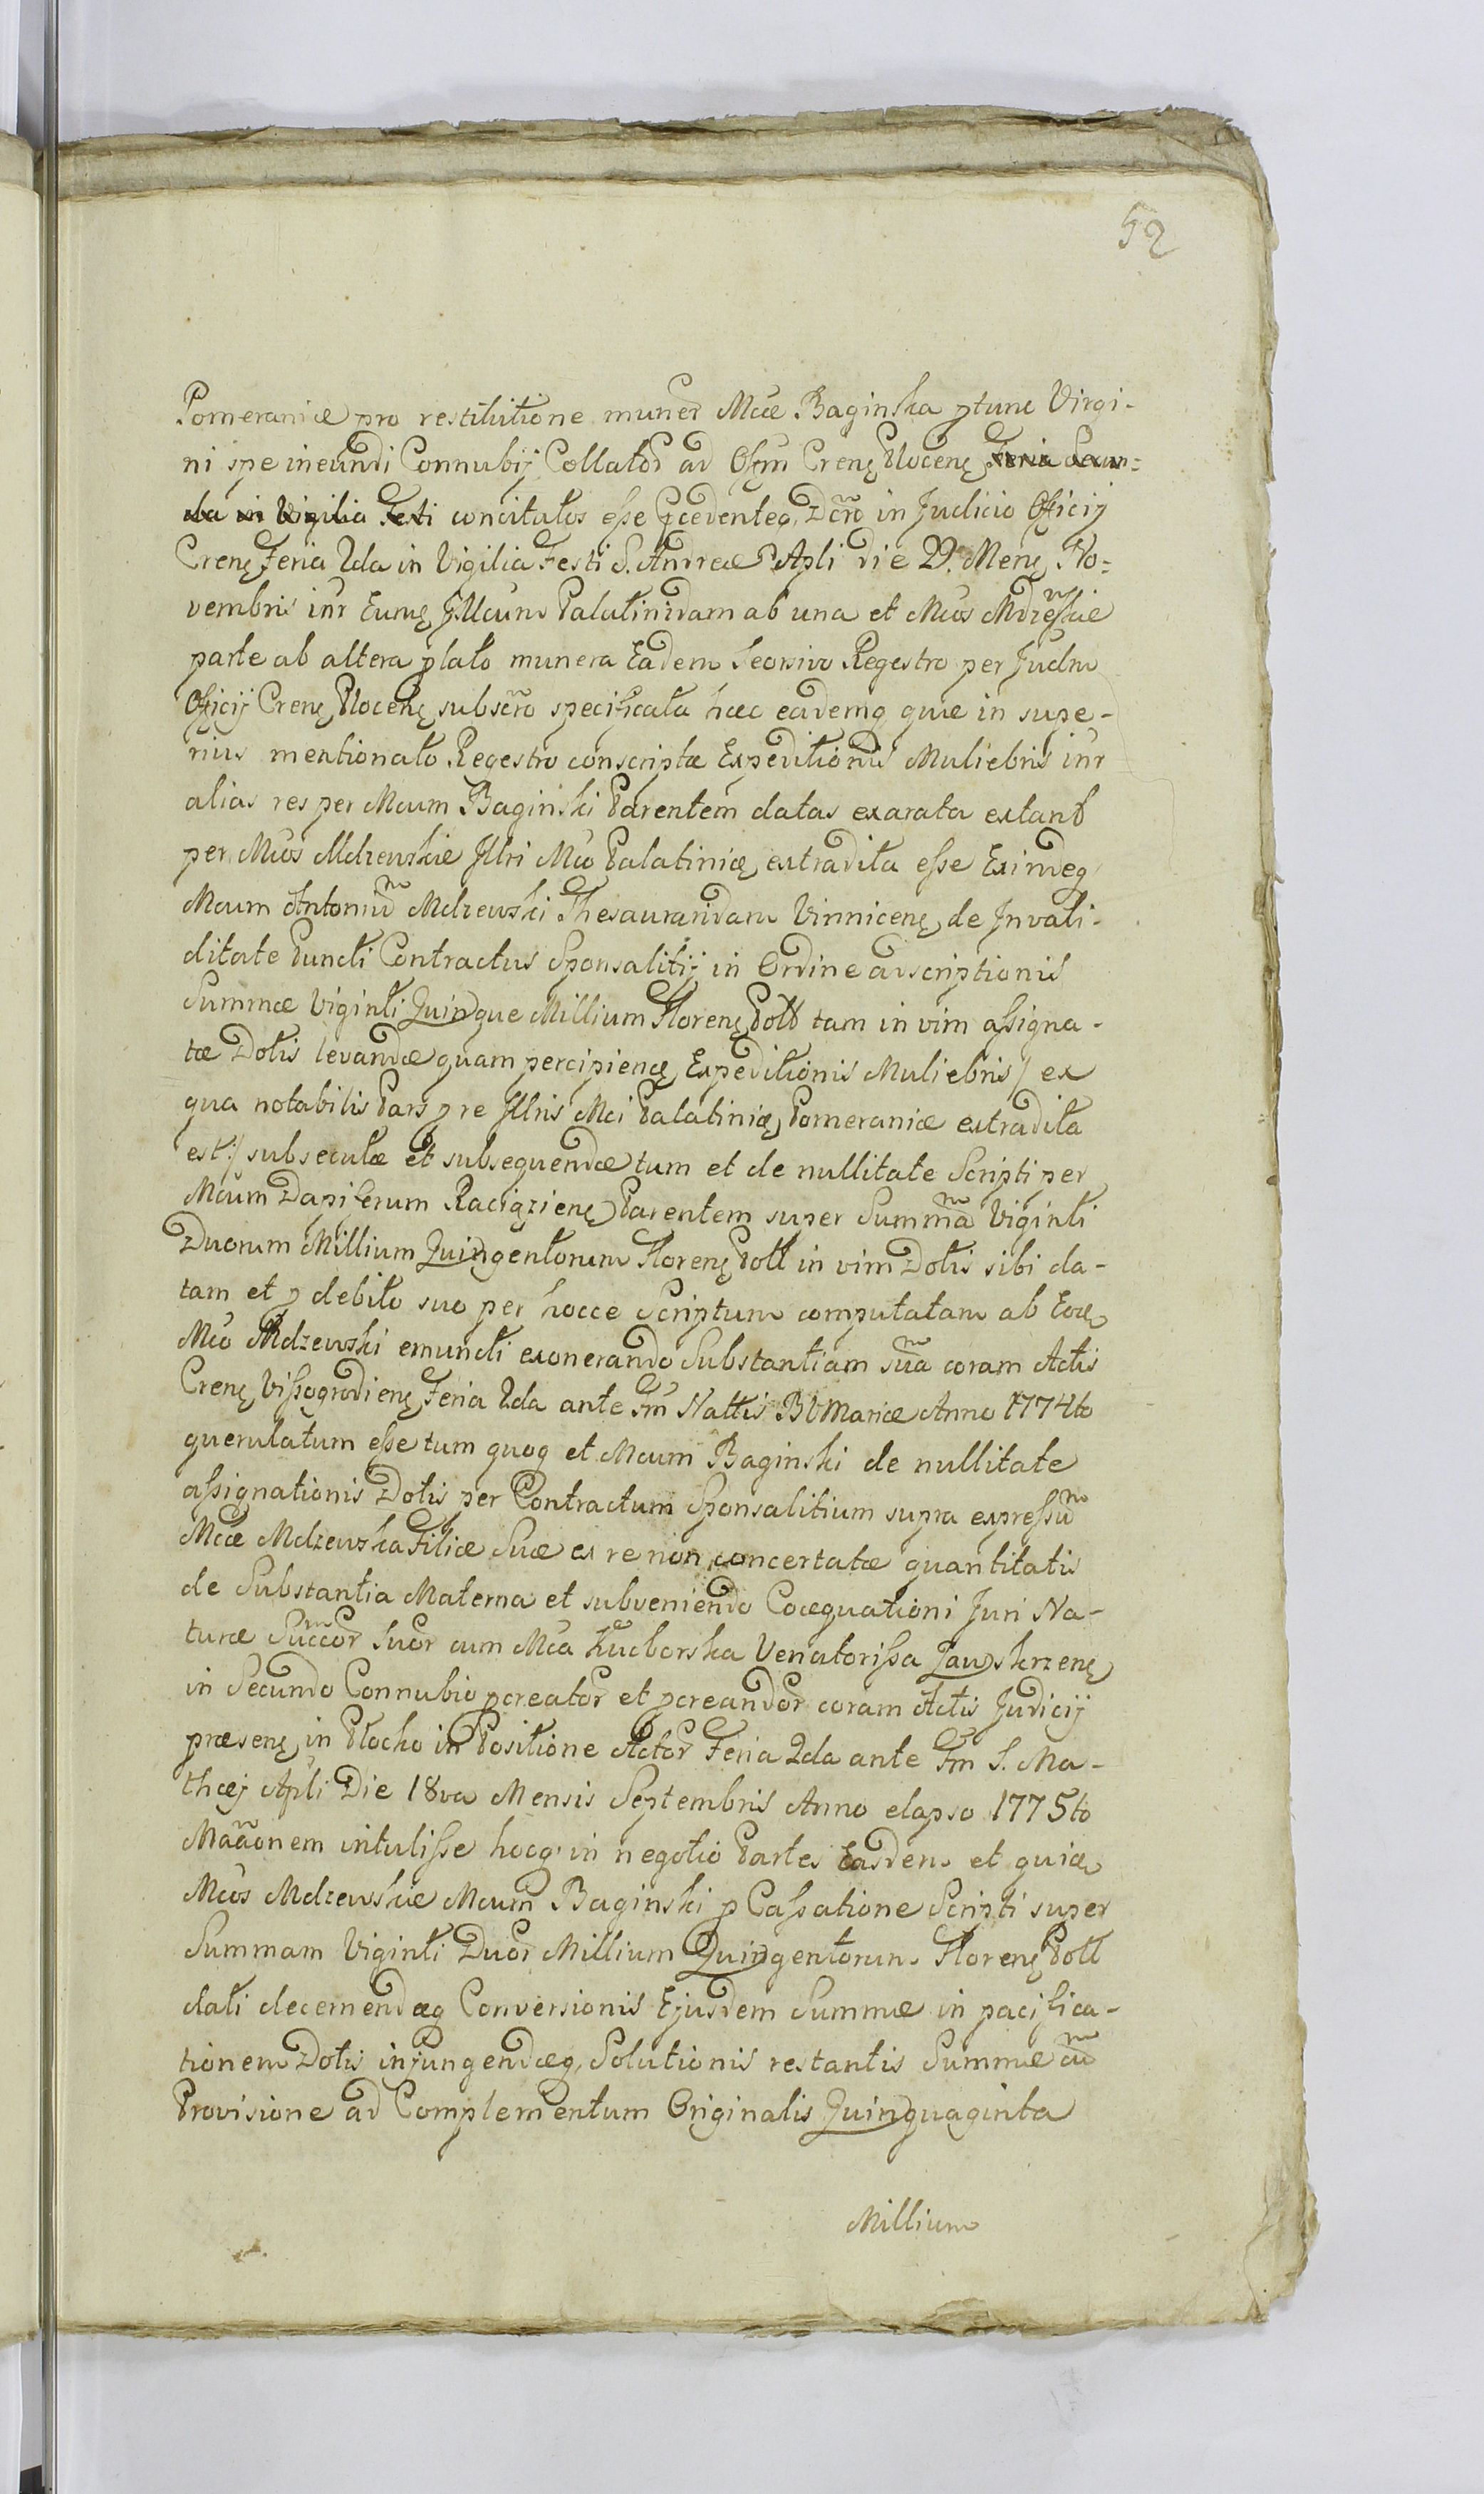 52
Pomeraniæ pro restitutione muner Mcæ Baginska ptunc Virgi-
ni spe ineundi Connubij Collator ad Offm Crenꝫ Plocenꝫ Feria Secun=
da in Vigilia Festi concitatos esse Pcedenteq Dcro in Judicio Officij
Crenꝫ Feria 2da in Vigilia Festi S. Andreæ Apli die 29. Menꝫ No=
vembris inr Eumꝫ Mcum Palatinidam ab una et Mcos Mdzewskie
parte ab altera plato munera Eadem Seorsivo Regestro per Judm
Officij Crenꝫ Plocenꝫ subscro specificata hæc eademq quæ in supe-
rius mentionato Regestro conscriptæ Expeditionis Muliebris inr
alias res per Mcum Baginski Parentem datas exarata extant
per Mcos Mdzewskie Illri Mco Palatinidæ extradita esse Exindeq
Mcum Antoniu Mdzewski Thesauraridam Vinnicenꝫ de Invali-
ditate Puncti Contractus Sponsalitij in Ordine adscriptionis
Summæ Viginti Quinque Millium Florenꝫ Poll tam in vim assigna-
tæ Dotis levandæ quam percipienꝫ Expeditionis Muliebris/ ex
qua notabilis Pars p re Illris Mci Palatinidæ Pomeraniæ extradita
est:/ subsecutæ et subsequendæ tum et de nullitate Scripti per
Mcum Dapiferum Raciązienꝫ Parentem super Summa Viginti
Duorum Millium Quingentorum Florenꝫ Poll in vim Dotis sibi da-
tam et p debito suo per hocce Scriptum computatam ab Eodꝫ
Mco Mdzewski emuncti exonerando Substantiam sua coram Actis
Crenꝫ Vissogrodienꝫ Feria 2da ante Fm Nattis BVMariæ Anno 1774to
querulatum esse tum quoq et Mcum Baginski de nullitate
assignationis Dotis per Contractum Sponsalitium supra expressu
Mcæ Mdzewska Filiæ Suæ ex re non concertatæ quantitatis
de Substantia Materna et subveniendo Coæquationi Juri Na-
turæ Succor Suor cum Mca Kucborska Venatorissa Zawskrzenꝫ
in Secundo Connubio pcreator et pcreandor coram Actis Judicij
præsenꝫ in Plocko in Positione Actor Feria 2da ante Fm S. Ma-
thæj Apli Die 18va Mensis Septembris Anno elapso 1775to
Maãonem intulisse hocq in negotio Partes Easdem et quia
Mcos Mdzewskie Mcum Baginski p Cassatione Scripti super
Summam Viginti Duor Millium Quingentorum Florenꝫ Poll
dati decernendæq Conversionis Ejusdem Summæ in pacifica-
tionem Dotis injungendæq Solutionis restantis Summæ cu
Provisione ad Complementum Originalis Quinquaginta
Millium